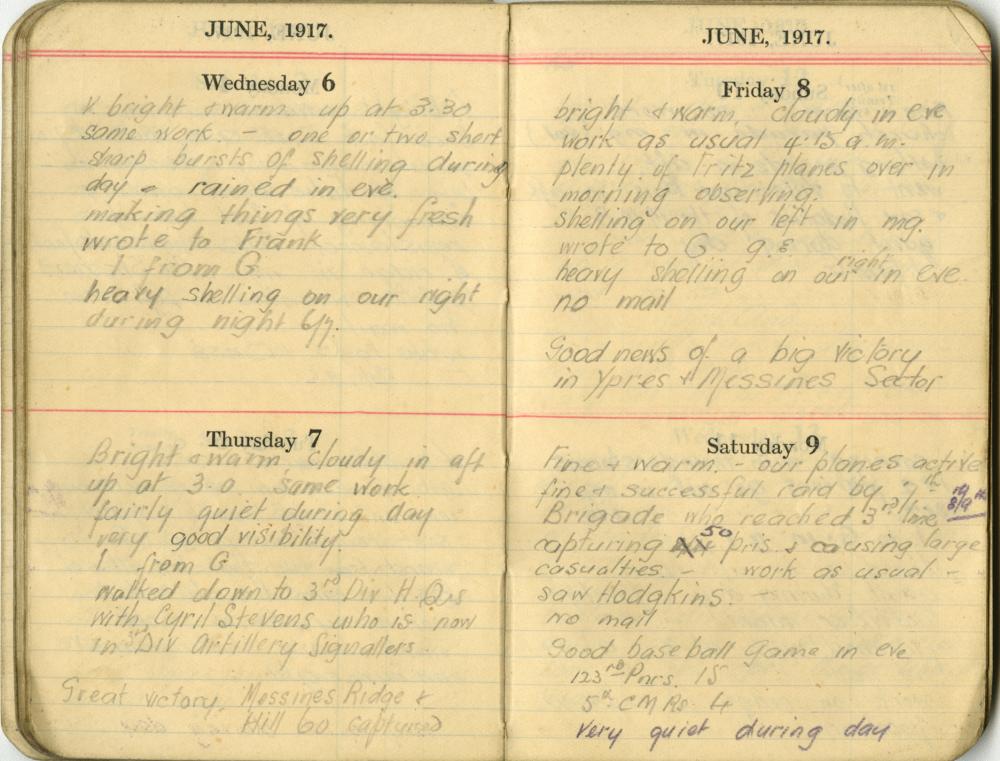 JUNE, 1917.
Wednesday 6
v. bright & warm. up at 3.30
same work - one or two short
sharp bursts of shelling during
day - rained in eve.
making things very fresh
wrote to Frank
1 from G.
heavy shelling on our right
during night 6/7.
Thursday 7
Bright & warm, cloudy in aft
up at 3.0. same work.
fairly quiet during day
very good visibility.
1 from G
walked down to 3rd Div H.Qs
with Cyril Stevens who is now
in 3rd Div Artillery Signallers.
Great victory, Messines Ridge &
Hill 60 captured
JUNE, 1917.
Friday 8
bright & warm, cloudy in eve
work as usual 4.15 a.m.
plenty of Fritz planes over in
morning observing.
shelling on our left in mg.
wrote to G g.8
heavy shelling on our right in eve.
no mail
Good news of a big victory
in Ypres & Messines Sector
Saturday 9
Fine & warm. - our planes active
fine & successful raid by 7th
Brigade who reached 3rd line
8/9th
capturing 50 pris. & causing large
casualties - work as usual -
saw Hodgkins.
no mail
Good baseball game in eve
123rd Pnrs. 15
5th CMRs 4
very quiet during day